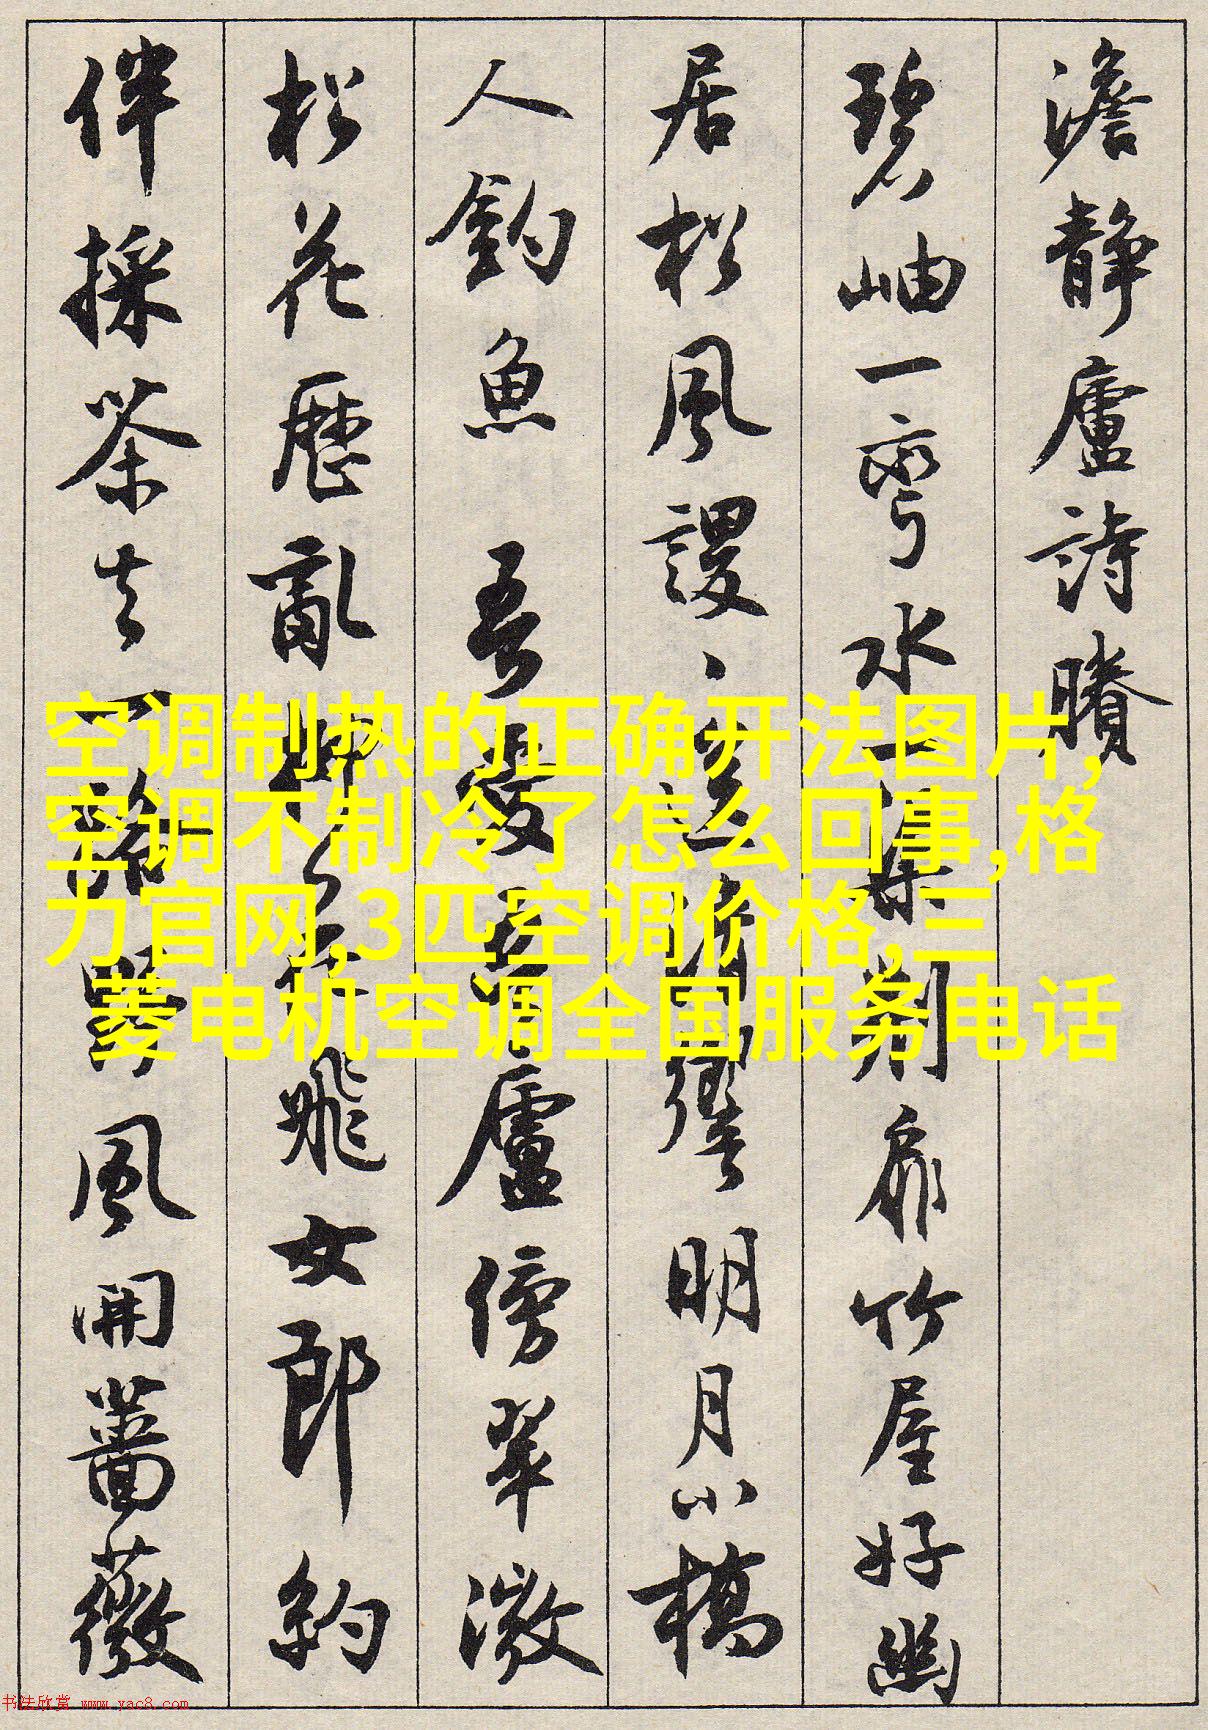 澹静廬詩賸
碧岫一彎水一渠剡扉竹屋好幽
居松風謖、
明月小橋
人釣魚 吾愛吾廬傍翠微
松花歷亂
飛女郎約
伴採茶去一
風開薔薇
空调制热的正确开法图片,
空调不制冷了怎么回事,格
力官网,3匹空调价格,三
菱电机空调全国服务电话
书法欣赏 www.yac8.com